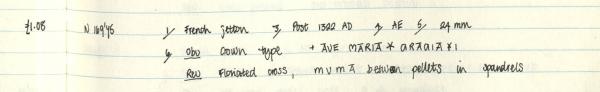 £1.08 N 169'45 1/ French jetton 3/ Post 1322 AD 4/ AE 5/ 24 mm
6/ Obv crown type + AVE MARIA * GRACIA * I
Rev Floriated cross, m v m A between pellets in spandrels